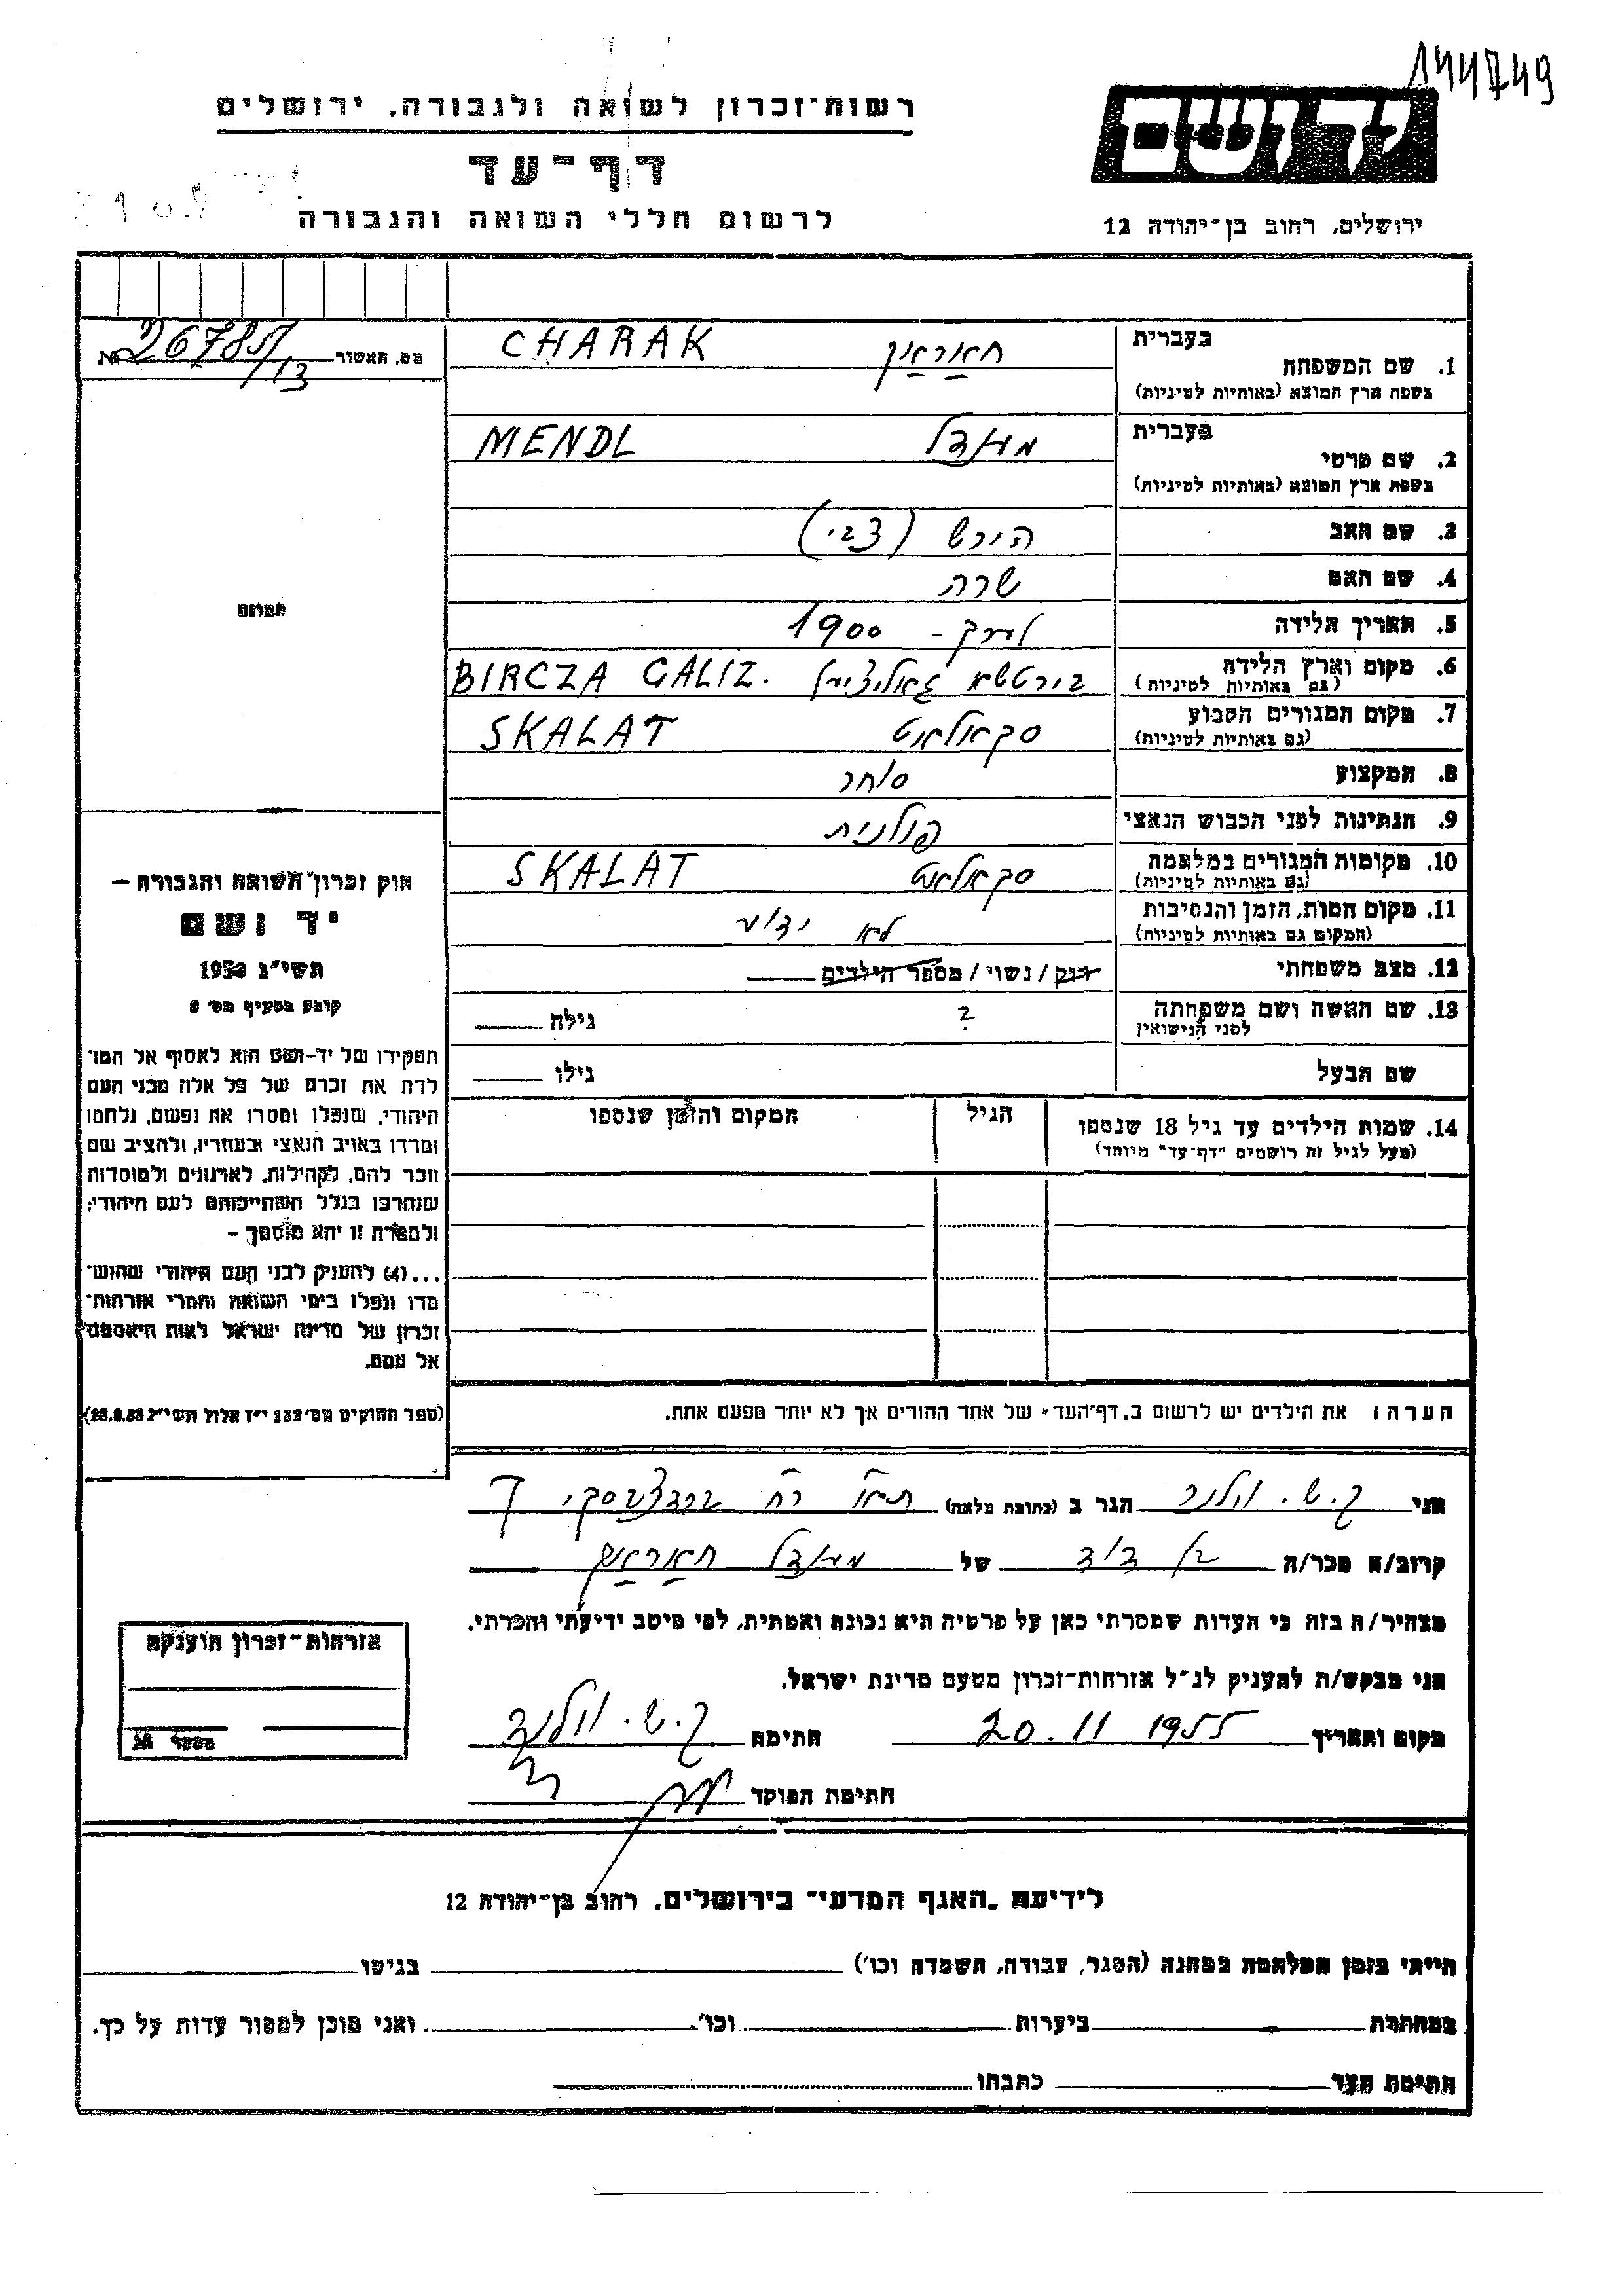 144749
רשות־זכרון לשואה ולגבורה, ירושלים
יד ושם
דף־עד
לרשום חללי השואה והגבורה
ירושלים, רחוב בן־יהודה 12
מס. האשור
1. שם המשפחה
בעברית
CHARAK חאראק
בשפת ארץ המוצא (באותיות לטיניות)
2. שם פרטי
בעברית
MENDL מענדל
בשפת ארץ המוצא (באותיות לטיניות)
3. שם האב הירש (צבי)
4. שם האם שרה
5. תאריך הלידה לערך - 1900
6. מקום וארץ הלידה
(גם באותיות לטיניות)
BIRCZA GALIZ.
7. מקום המגורים הקבוע
(גם באותיות לטיניות)
סקאלאט SKALAT
8. המקצוע סוחר
9. הנתינות לפני הכבוש הנאצי פולנית
10. מקומות המגורים במלחמה
(גם באותיות לטיניות)
סקאלאט SKALAT
11. מקום המות, הזמן והנסיבות
(המקום גם באותיות לטיניות)
לא ידוע
12. מצב משפחתי רווק / נשוי / מספר הילדים
13. שם האשה ושם משפחתה
לפני הנישואין
? גילה
שם הבעל גילו
14. שמות הילדים עד גיל 18 שנספו הגיל המקום והזמן שנספו
(מעל לגיל זה רושמים "דף־עד" מיוחד)
הערה: את הילדים יש לרשום ב"דף־העד" של אחד ההורים אך לא יותר מפעם אחת.
תמונה
חוק זכרון השואה והגבורה –
יד ושם
תשי"ג 1953
קובע בסעיף מס' 2
תפקידו של יד-ושם הוא לאסוף אל המו־
לדת את זכרם של כל אלה מבני העם
היהודי, שנפלו ומסרו את נפשם, נלחמו
ומרדו באויב הנאצי ובעוזריו, ולהציב שם
וזכר להם, לקהילות, לארגונים ולמוסדות
שנחרבו בגלל השתייכותם לעם היהודי;
ולמטרה זו יהא מוסמך –
...(4) להעניק לבני העם היהודי שהוש־
מדו ונפלו בימי השואה והמרי אזרחות־
זכרון של מדינת ישראל לאות היאספם
אל עמם.
(ספר החוקים מס' 132 י"ז אלול תשי"ג 28.8.53)
אני ק. ש. הגר ב (כתובת מלאה) ת"א רח 7
קרוב/ה מכר/ה בן דוד של מענדל חאראק
מצהיר/ה בזה כי העדות שמסרתי כאן על פרטיה היא נכונה ואמתית, לפי מיטב ידיעתי והכרתי.
אני מבקש/ת להעניק לנ"ל אזרחות־זכרון מטעם מדינת ישראל.
מקום ותאריך 20.11 1955 חתימה ק. ש.
חתימת הפוקד
אזרחות־זכרון הוענקה
מספר
לידיעת "האגף המדעי" בירושלים, רחוב בן־יהודה 12
הייתי בזמן המלחמה במחנה (הסגר, עבודה, השמדה וכו') בגיטו
במחתרת ביערות וכו'. ואני מוכן למסור עדות על כך.
חתימת העד כתבתו